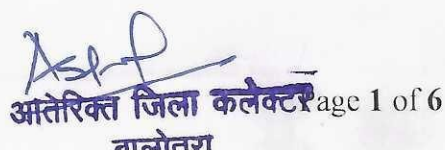 अतिरिक्त जिला कलेक्टर
Page 1 of 6
बालोतरा